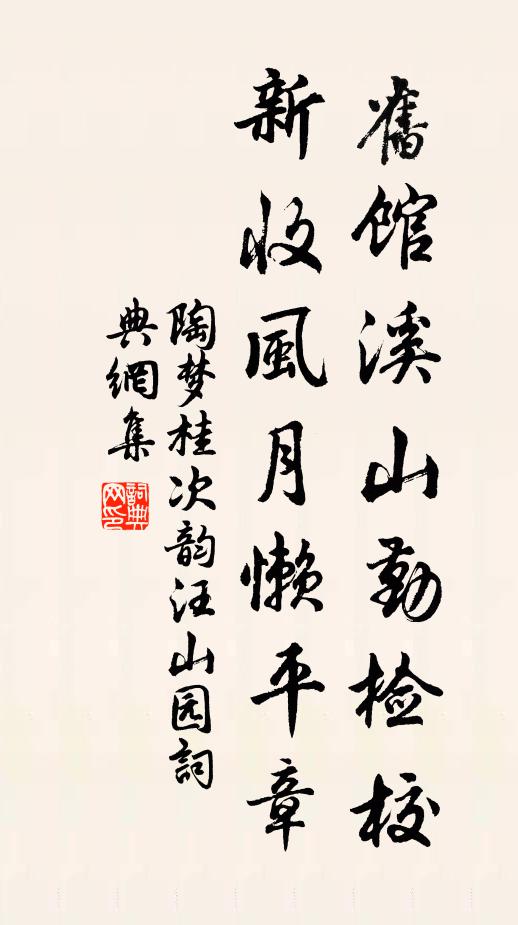 舊馆溪山勤检校
新收風月懒平章
陶梦桂次韵汪山园詞
典網集
詞典
网印